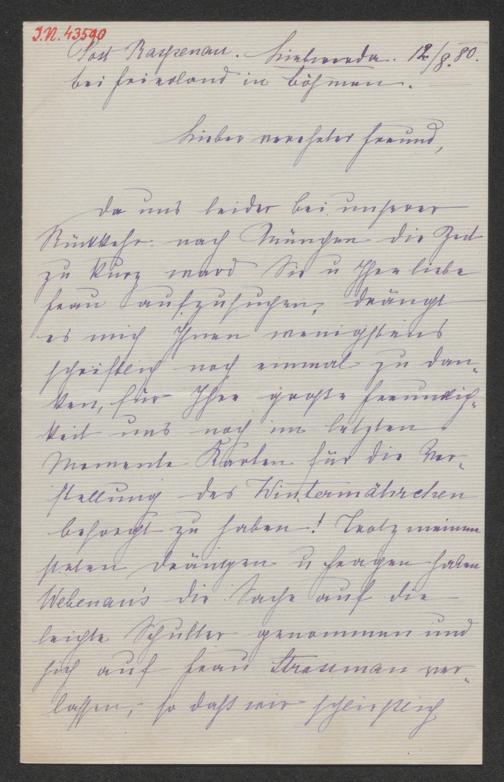 J.N. 43590
Post Raspenau. Liebwerda. 12/8. 80.
bei Friedland in Böhmen.
Lieber verehrter Freund,
Da uns leider bei unserer
Rückkehr nach München die Zeit
zu kurz ward Sie u Ihre liebe
Frau aufzusuchen, drängt
es mich Ihnen wenigstens
schriftlich noch einmal zu dan-
ken, für Ihre große Freundlich-
keit uns noch im letzten
Momente Karten für die Vor-
stellung des Wintermährchen
besorgt zu haben! Trotz meinem
steten Drängen u Fragen haben
Webenau's die Sache auf die
leichte Schulter genommen und
sich auf Frau Strassman ver-
lassen, so daß wir schließlich